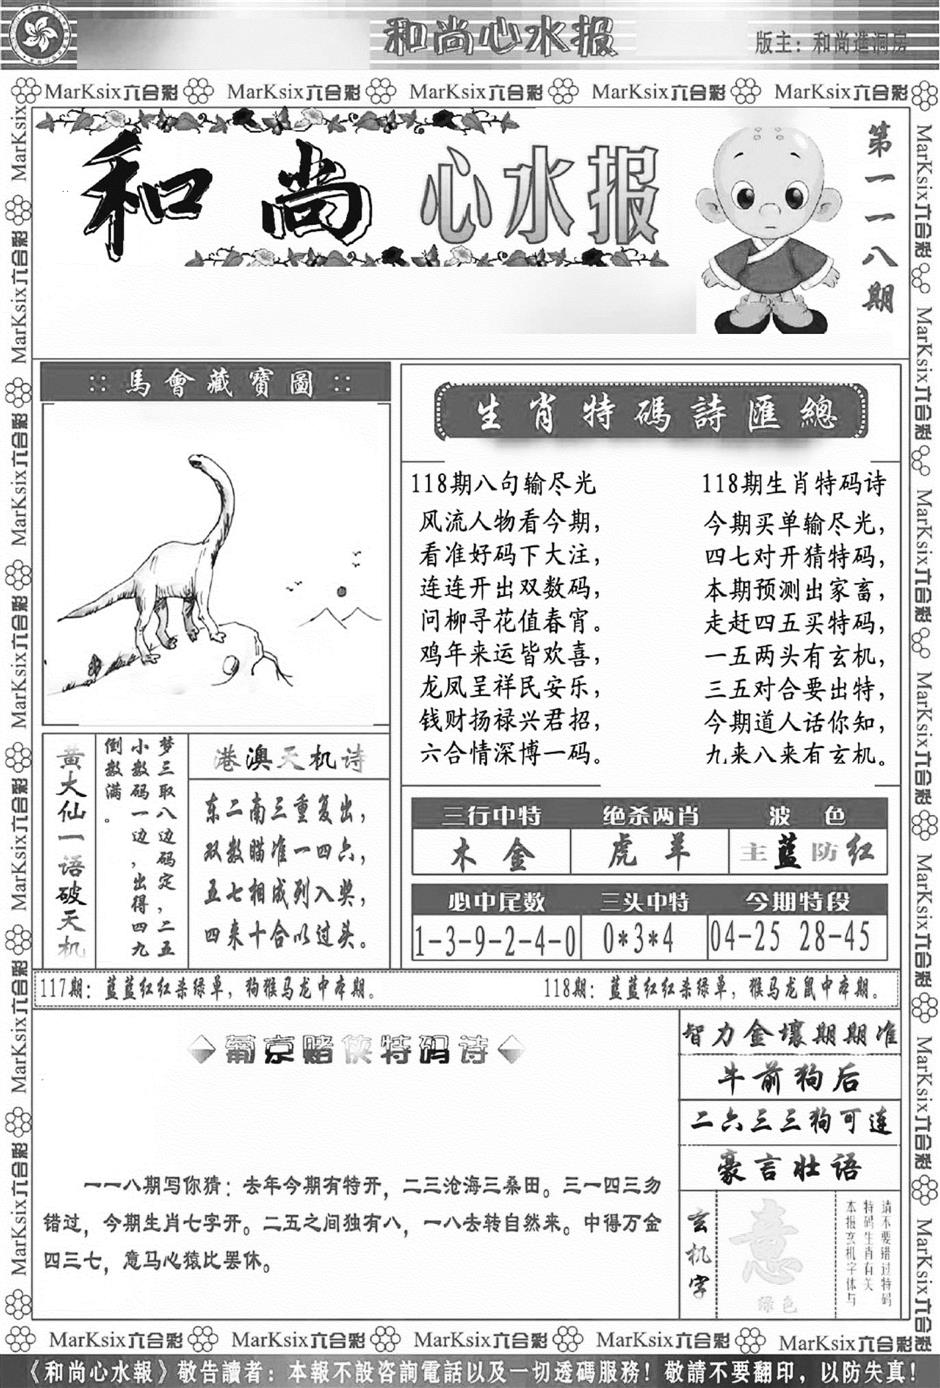 和尚心水报
版主：和尚造洞房
MarKsix六合彩 MarKsix六合彩 MarKsix六合彩 MarKsix六合彩 MarKsix六合彩
和尚心水报
第一一八期
馬會藏寶圖
生肖特碼詩匯總
118期八句输尽光
风流人物看今期，
看准好码下大注，
连连开出双数码，
问柳寻花值春宵。
鸡年来运皆欢喜，
龙凤呈祥民安乐，
钱财扬禄兴君招，
六合情深博一码。
118期生肖特码诗
今期买单输尽光，
四七对开猜特码，
本期预测出家畜，
走赶四五买特码，
一五两头有玄机，
三五对合要出特，
今期道人话你知，
九来八来有玄机。
黄大仙一语破天机
梦三取八边码定，二五
小数码一边，出得四九
倒数满。
港澳天机诗
东二南三重复出，
双数瞄准一四六，
五七相成列入奖，
四来十合以过头。
三行中特 绝杀两肖 波色
木金 虎羊 主蓝防红
必中尾数 三头中特 今期特段
1-3-9-2-4-0 0*3*4 04-25 28-45
117期：蓝蓝红红杀绿单，狗猴马龙中本期。
118期：蓝蓝红红杀绿单，猴马龙鼠中本期。
葡京赌侠特码诗
一一八期写你猜：去年今期有特开，二三沧海三桑田。三一四三勿
错过，今期生肖七字开。二五之间独有八，一八去转自然来。中得万金
四三七，意马心猿比罢休。
智力金壤期期准
牛前狗后
二六三三狗可连
豪言壮语
玄机字
意
绿色
请不要错过特码
特码生肖有关
本报玄机字体与
MarKsix六合彩 MarKsix六合彩 MarKsix六合彩 MarKsix六合彩 MarKsix六合彩
《和尚心水報》敬告讀者：本報不設咨詢電話以及一切透碼服務！敬請不要翻印，以防失真！